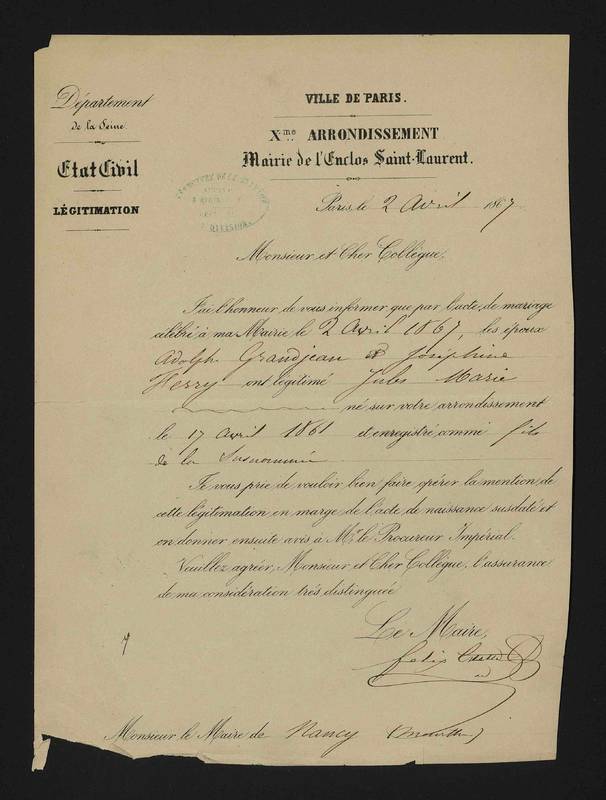 Département
de la Seine.
Etat Civil
LÉGITIMATION
VILLE DE PARIS.
Xme ARRONDISSEMENT
Mairie de l'Enclos Saint-Laurent.
Paris le 2 Avril 1867
Monsieur et Cher Collègue,
J'ai l'honneur de vous informer que par l'acte de mariage
célébré à ma Mairie le 2 Avril 1867, les époux
Adolph Grandjean et Joséphine
Herry ont légitimé Jules Marie
né sur votre arrondissement
le 17 avril 1861 et enregistré comme fils
de la Susnommée
Je vous prie de vouloir bien faire opérer la mention de
cette légitimation en marge de l'acte de naissance susdaté et
en donner ensuite avis à Mr. le Procureur Impérial.
Veuillez agréer, Monsieur et Cher Collègue, l'assurance
de ma considération très distinguée
Le Maire,
felix
Monsieur le Maire de Nancy